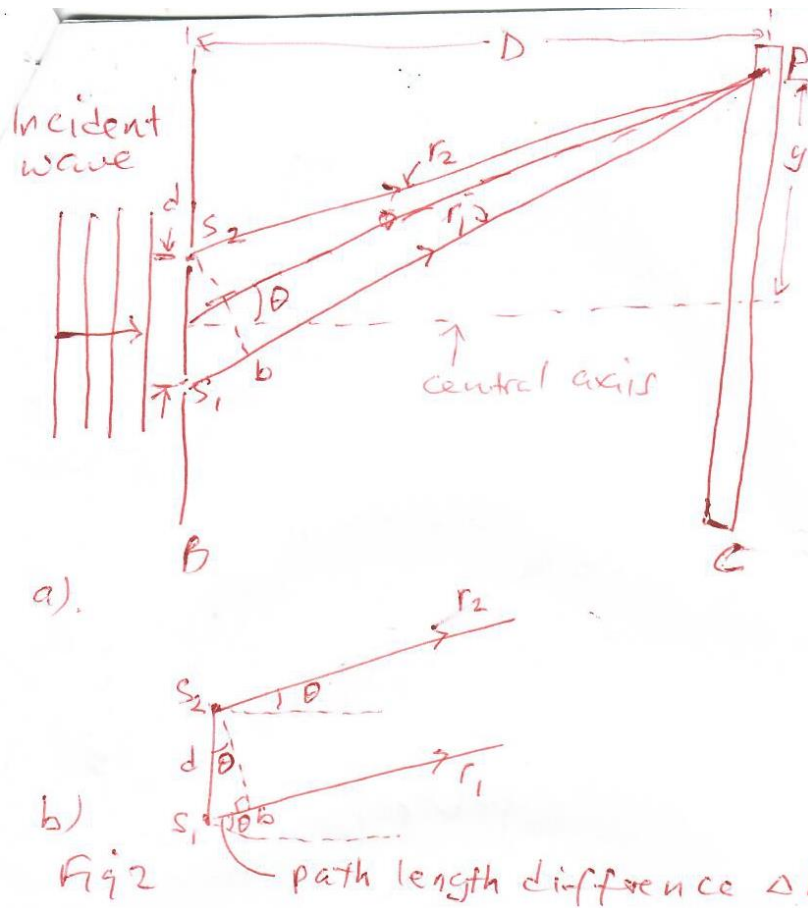 D
P
Incident
wave
r2
y
d
r1
S2
θ
θ
b
central axis
S1
B
C
a).
r2
S2
θ
d
θ
r1
b)
S1
θ
b
Fig 2
path length diffrence Δ